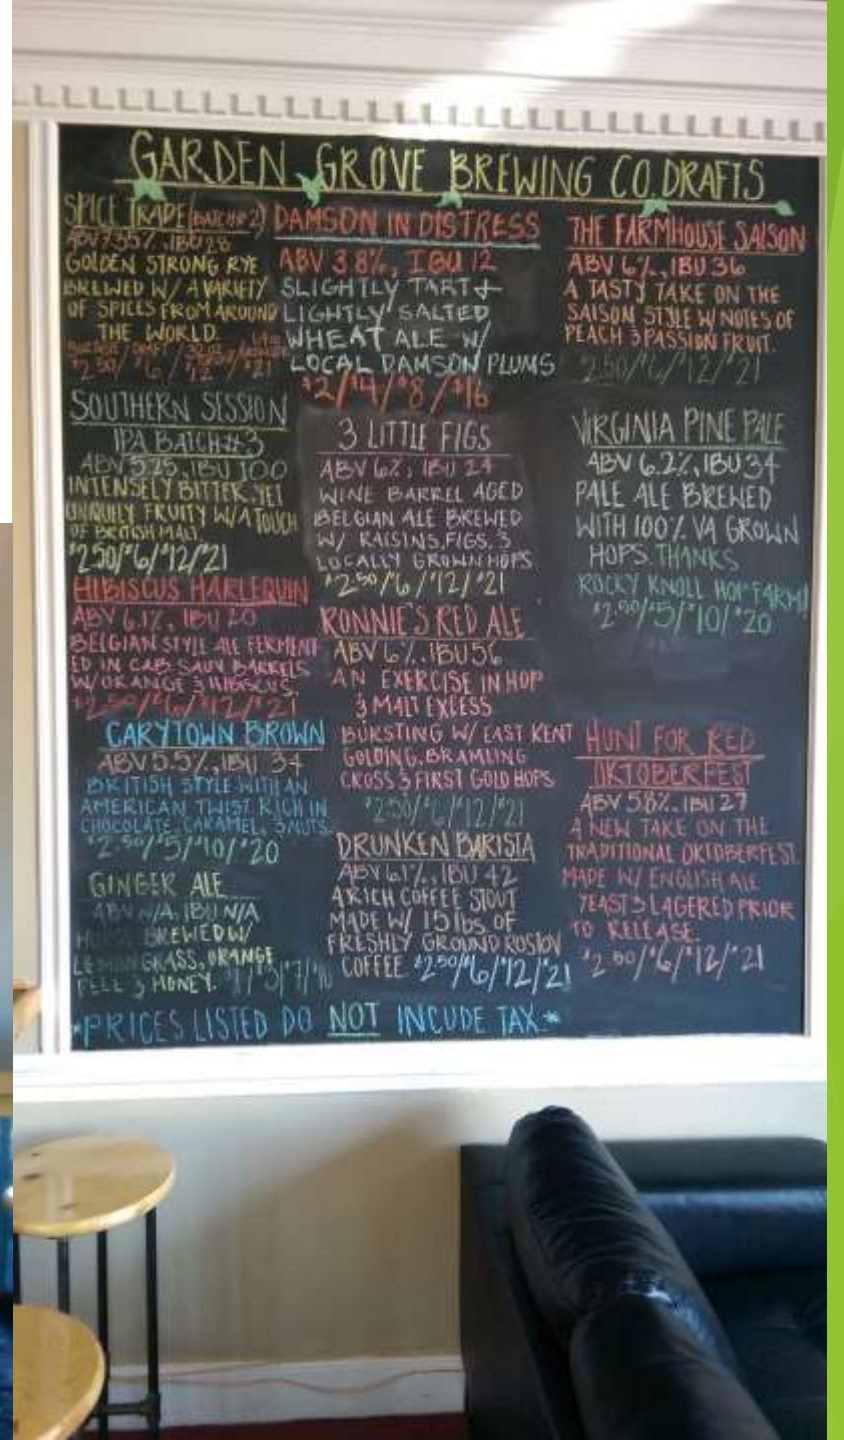 GARDEN GROVE BREWING CO. DRAFTS
SPICE TRADE (BATCH #2)
ABV 7.35%, IBU 28
GOLDEN STRONG RYE
BREWED W/ A VARIETY
OF SPICES FROM AROUND
THE WORLD.
$2.50/ $6 / $12 / $21
SOUTHERN SESSION
IPA BATCH #3
ABV 5.25, IBU 100
INTENSELY BITTER, YET
UNIQUELY FRUITY W/ A TOUCH
OF BRITISH MALT.
$2.50/$6/$12/$21
HIBISCUS HARLEQUIN
ABV 6.1%, IBU 20
BELGIAN STYLE ALE FERMENT
ED IN CAB SAUV BARRELS
W/ ORANGE & HIBISCUS.
$2.50/$6/$12/$21
CARYTOWN BROWN
ABV 5.5%, IBU 34
BRITISH STYLE WITH AN
AMERICAN TWIST RICH IN
CHOCOLATE, CARAMEL, & NUTS.
$2.50/$5/$10/$20
GINGER ALE
ABV N/A, IBU N/A
HOUSE BREWED W/
LEMON GRASS, ORANGE
PEEL & HONEY. $1/$3/$7/$10
DAMSON IN DISTRESS
ABV 3.8%, IBU 12
SLIGHTLY TART +
LIGHTLY SALTED
WHEAT ALE W/
LOCAL DAMSON PLUMS
$2/$4/$8/$16
3 LITTLE FIGS
ABV 6%, IBU 24
WINE BARREL AGED
BELGIAN ALE BREWED
W/ RAISINS, FIGS, &
LOCALLY GROWN HOPS
$2.50/$6/$12/$21
RONNIE'S RED ALE
ABV 6%, IBU 56
AN EXERCISE IN HOP
& MALT EXCESS
BURSTING W/ EAST KENT
GOLDING, BRAMLING
CROSS & FIRST GOLD HOPS
$2.50/$6/$12/$21
DRUNKEN BARISTA
ABV 6.1%, IBU 42
A RICH COFFEE STOUT
MADE W/ 15 lbs OF
FRESHLY GROUND ROSTOV
COFFEE $2.50/$6/$12/$21
THE FARMHOUSE SAISON
ABV 6%, IBU 36
A TASTY TAKE ON THE
SAISON STYLE W/ NOTES OF
PEACH & PASSION FRUIT.
2.50/$6/$12/$21
VIRGINIA PINE PALE
ABV 6.2%, IBU 34
PALE ALE BREWED
WITH 100% VA GROWN
HOPS. THANKS
ROCKY KNOLL HOP FARM!
$2.50/$5/$10/$20
HUNT FOR RED
OKTOBERFEST
ABV 5.8%, IBU 27
A NEW TAKE ON THE
TRADITIONAL OKTOBERFEST.
MADE W/ ENGLISH ALE
YEAST & LAGERED PRIOR
TO RELEASE.
$2.50/$6/$12/$21
*PRICES LISTED DO NOT INCUDE TAX*